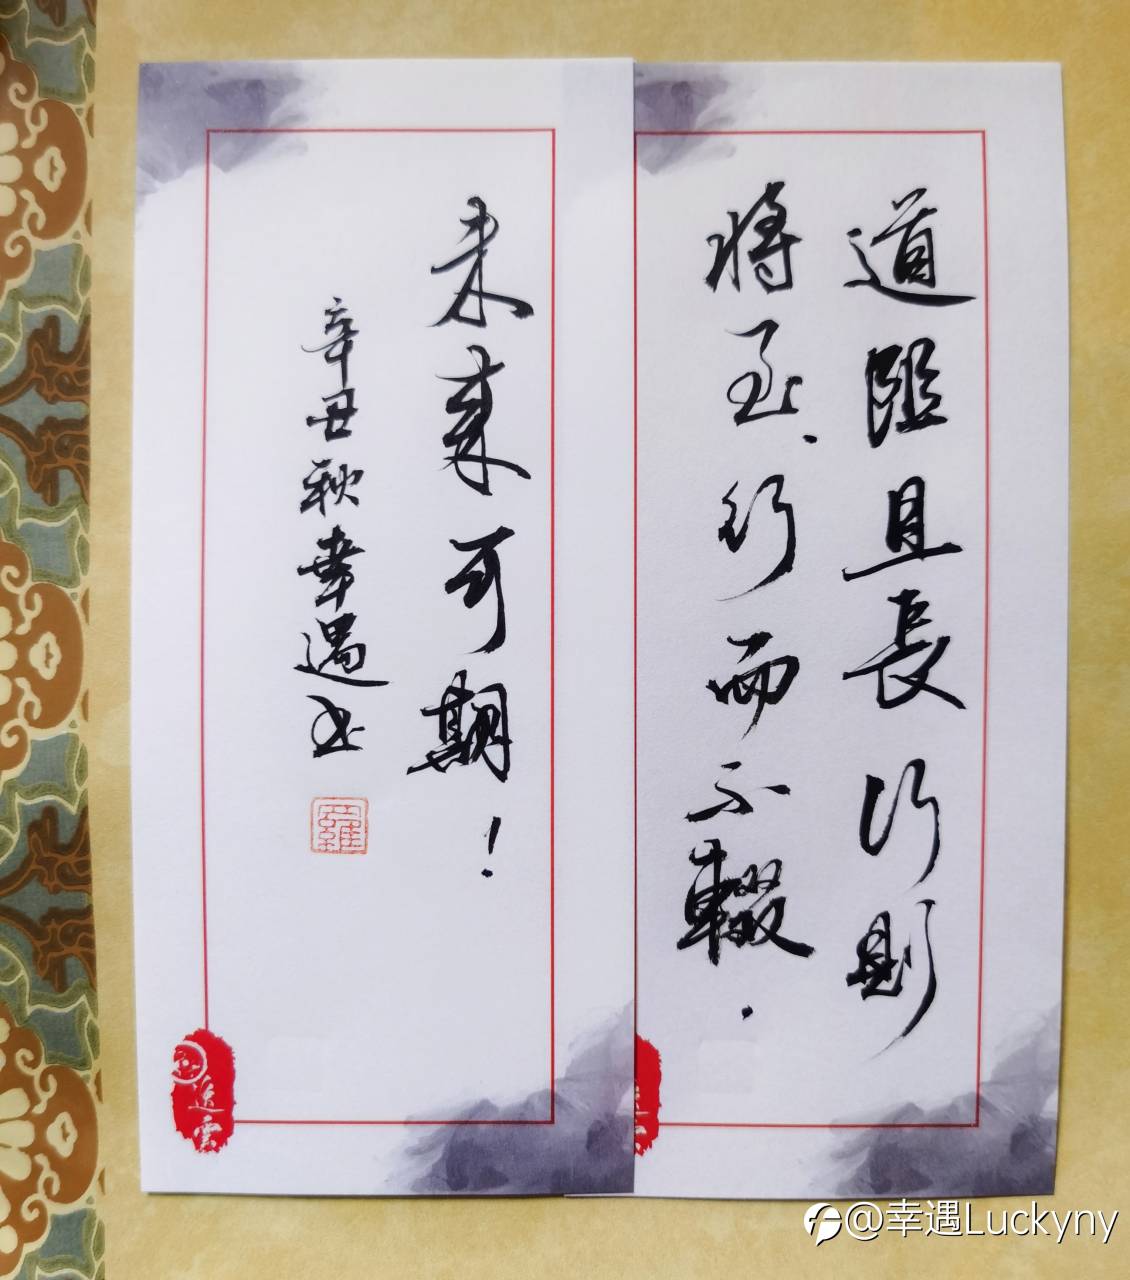 道阻且長行則
將至、行而不輟.
未來可期！
辛丑秋幸遇书
羅
追雲
@幸遇Luckyny